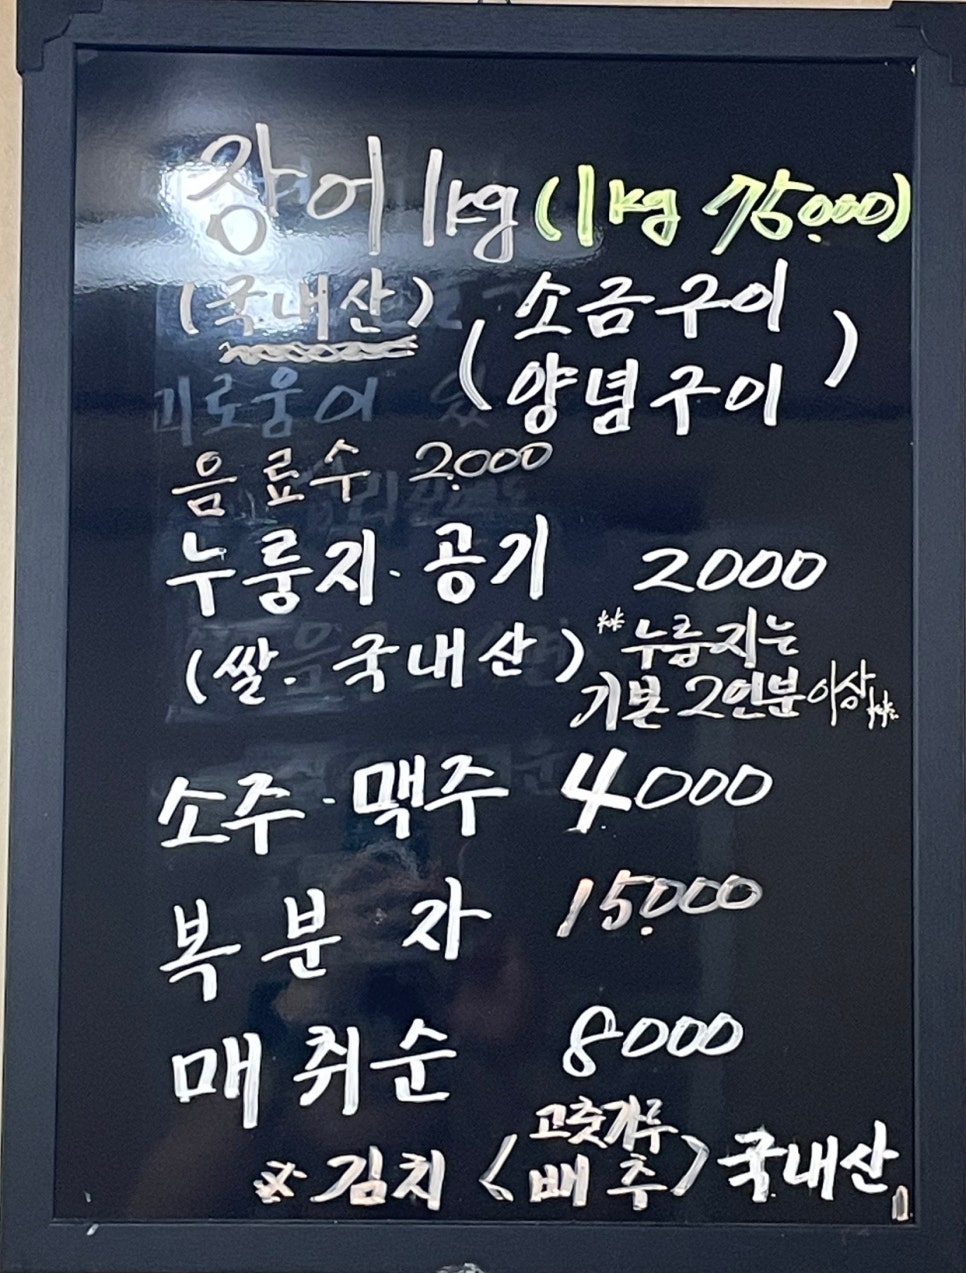 장어 1kg (1kg 75.000)
(국내산) (소금구이
양념구이)
음료수 2.000
누룽지·공기 2000
(쌀·국내산) **누룽지는
기본 2인분이상**
소주·맥주 4000
복분자 15.000
매취순 8000
※김치 <고춧가루
배추> 국내산